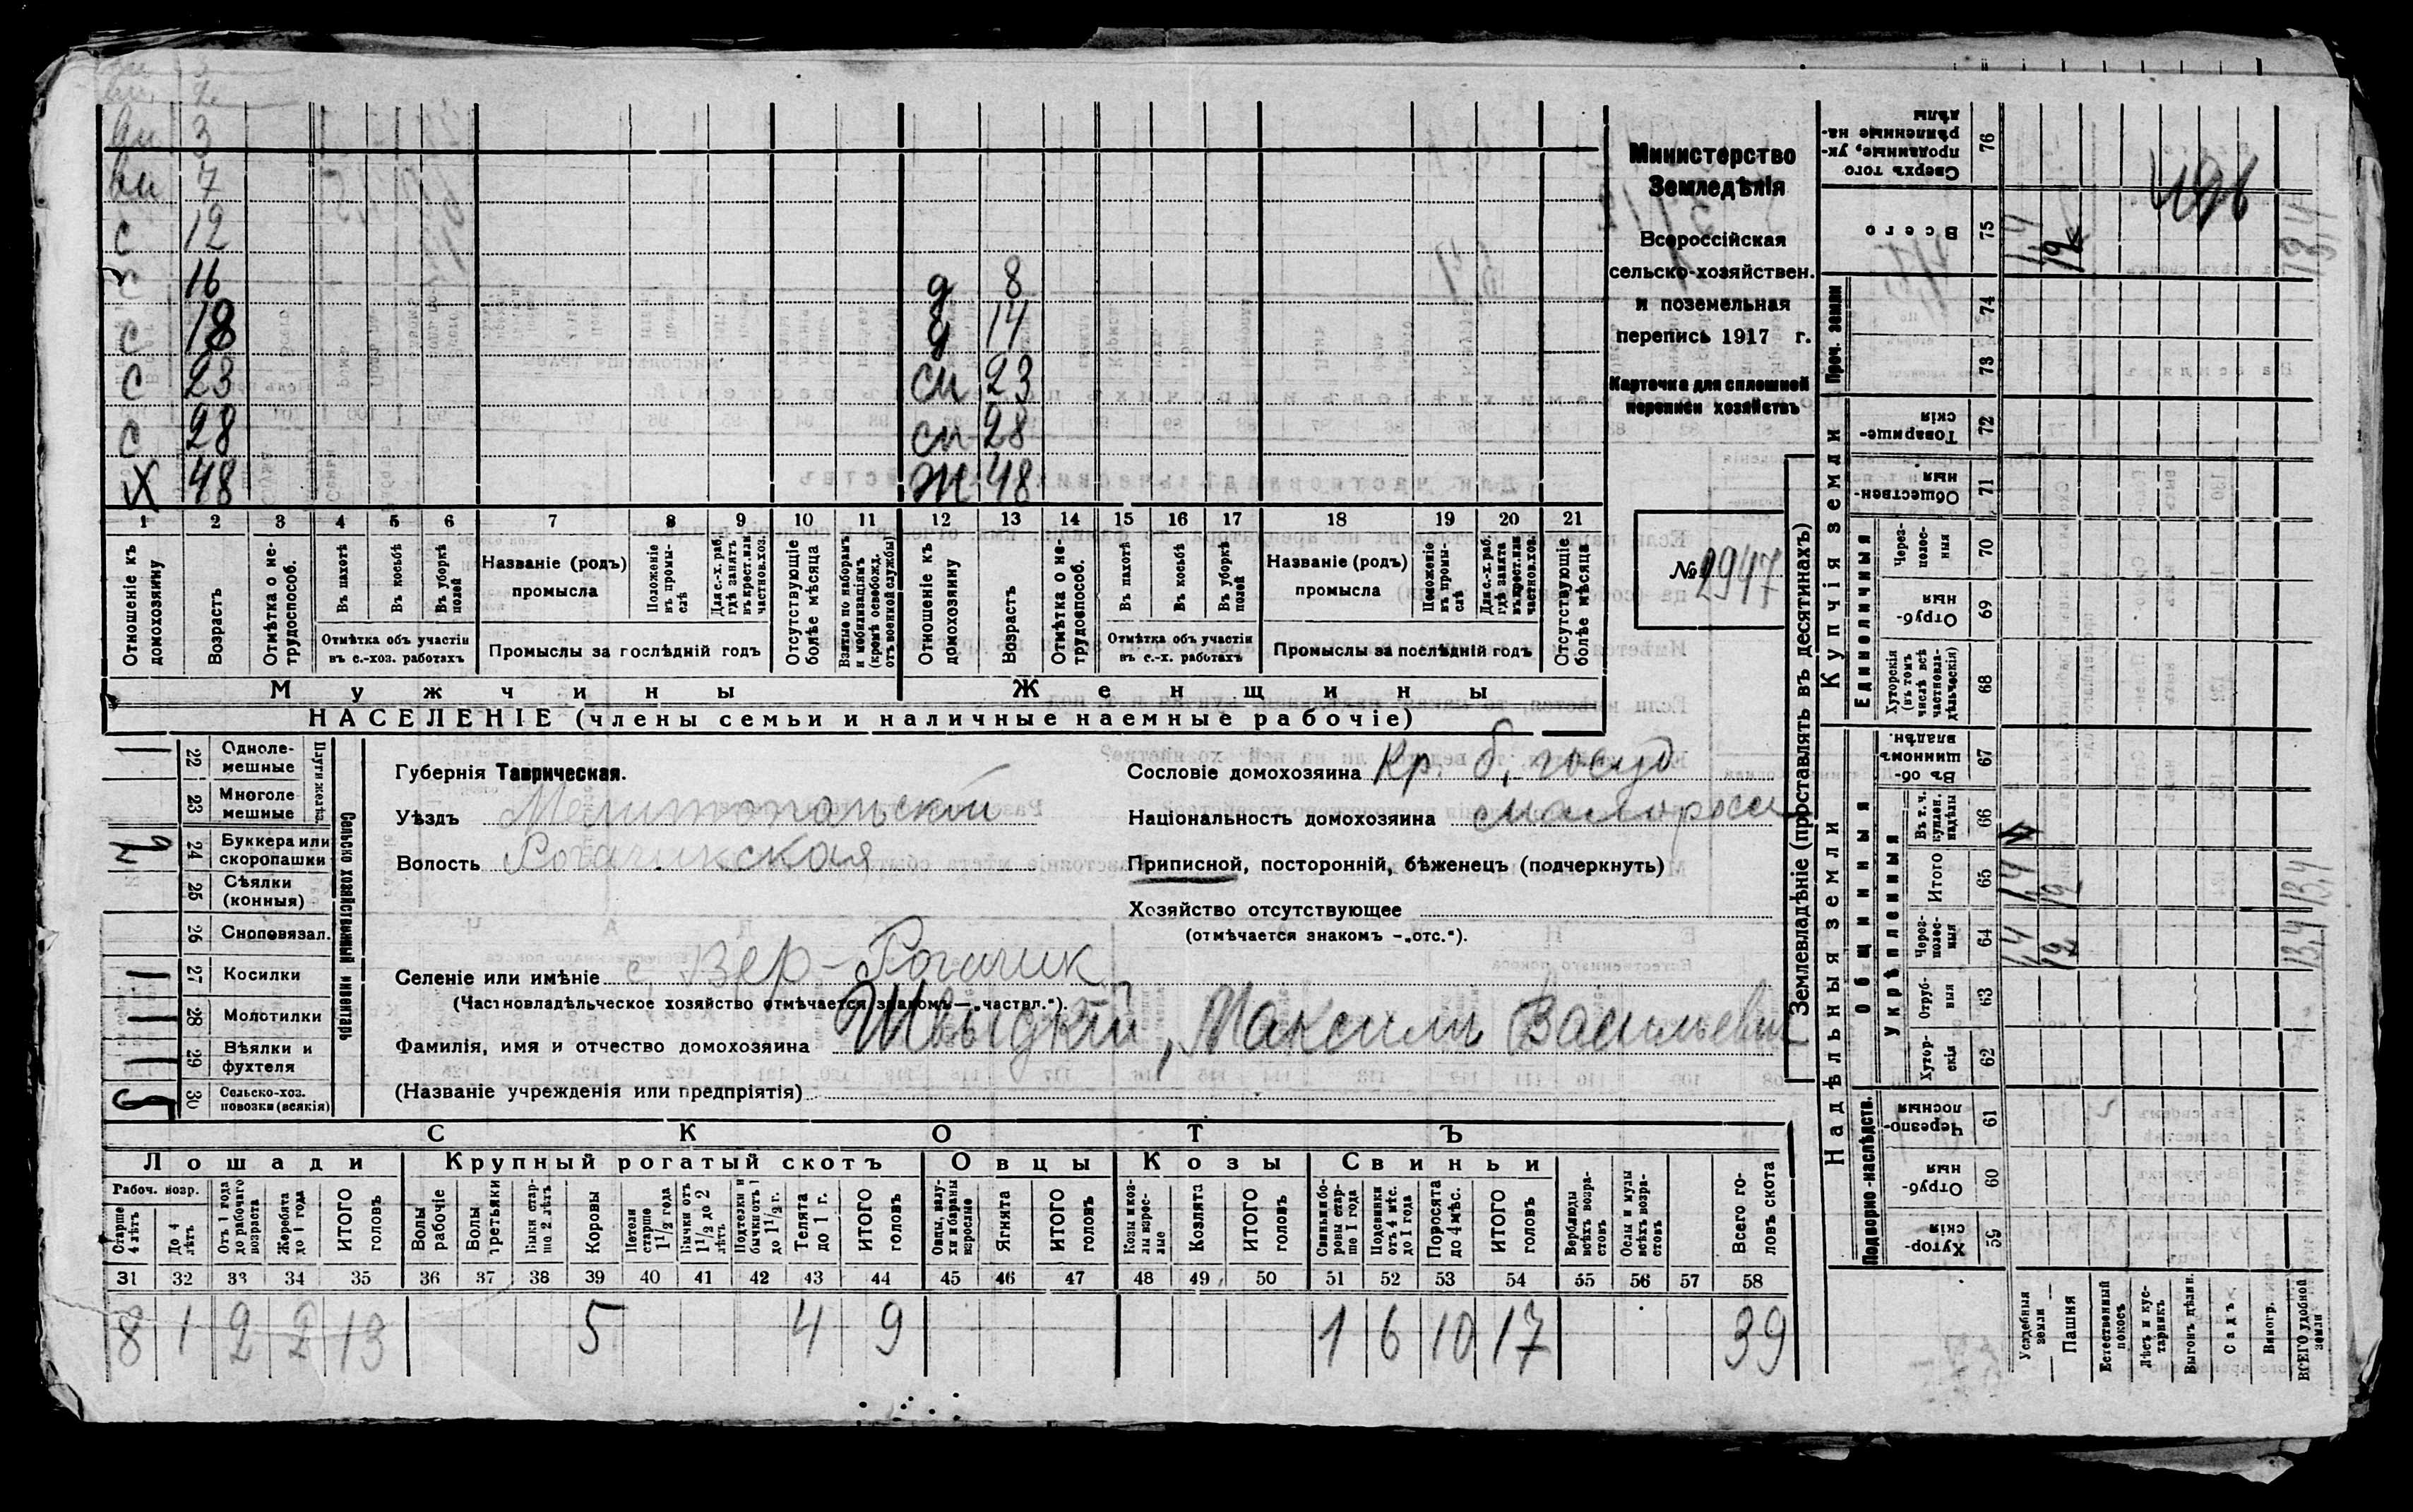 Министерство
Земледѣлія
Всероссійская
сельско-хозяйствен.
и поземельная
перепись 1917 г.
Карточка для сплошной
переписи хозяйствъ
№ 2947
3
7
с 12
с 16
с 18
с 23
с 28
Х 48
д 8
д 14
сн 23
сн 28
ж 48
1 2 3 4 5 6 7 8 9 10 11 12 13 14 15 16 17 18 19 20 21
Отношеніе къ домохозяину
Возрастъ
Отмѣтка о не-трудоспособ.
Въ пахотѣ
Въ косьбѣ
Въ уборкѣ полей
Отмѣтка объ участіи въ с.-хоз. работахъ
Названіе (родъ) промысла
Положеніе въ промы-слѣ
Для с.-х. раб. гдѣ занятъ въ крест. или частнов. хоз.
Промыслы за послѣдній годъ
Отсутствующіе болѣе мѣсяца
Взятые по наборамъ и мобилизаціямъ (кромѣ освобожд. отъ военной службы)
Отношеніе къ домохозяину
Возрастъ
Отмѣтка о не-трудоспособ.
Въ пахотѣ
Въ косьбѣ
Въ уборкѣ полей
Отмѣтка объ участіи въ с.-х. работахъ
Названіе (родъ) промысла
Положеніе въ промы-слѣ
Для с.-х. раб. гдѣ занята въ крест. или частнов. хоз.
Промыслы за послѣдній годъ
Отсутствующіе болѣе мѣсяца
Мужчины Женщины
НАСЕЛЕНІЕ (члены семьи и наличные наемные рабочіе)
Сельско хозяйственный инвентарь
Плуги желѣз.
22 Одноле-мешные 1
23 Многоле мешные
24 Буккера или скоропашки 2
25 Сѣялки (конныя)
26 Сноповязал.
27 Косилки 1
28 Молотилки 1
29 Вѣялки и фухтеля 1
30 Сельско-хоз. повозки (всякія) 5
Губернія Таврическая.
Уѣздъ Мелитопольскій
Волость Рогачикская
Сословіе домохозяина Кр. б. госуд
Національность домохозяина малоросс
Приписной, посторонній, бѣженецъ (подчеркнуть)
Хозяйство отсутствующее
(отмѣчается знакомъ —„отс.“).
Селеніе или имѣніе с. Вер-Рогачик
(Частновладѣльческое хозяйство отмѣчается знакомъ—„частвл.“).
Фамилія, имя и отчество домохозяина Швыдкій, Максим Васильевич
(Названіе учрежденія или предпріятія)
СКОТЪ
Лошади Крупный рогатый скотъ Овцы Козы Свиньи
Рабоч. возр.
Старше 4 лѣтъ
До 4 лѣтъ
Отъ 1 года до рабочаго возраста
Жеребята до 1 года
ИТОГО головъ
Волы рабочіе
Волы третьяки
Быки стар-ше 2 лѣтъ
Коровы
Нетели старше 1 1/2 года
Бычки отъ 1 1/2 до 2 лѣтъ
Подтелки и бычки отъ 1 до 1 1/2 г.
Телята до 1 г.
ИТОГО головъ
Овцы, валу-хи и бараны взрослые
Ягнята
ИТОГО головъ
Козы и коз-лы взрос-лые
Козлята
ИТОГО головъ
Свиньи бо-ровы стар-ше 1 года
Подсвинки отъ 4 мѣс. до 1 года
Поросята до 4 мѣс.
ИТОГО головъ
Верблюды всѣхъ возра-стовъ
Ослы и мулы всѣхъ возра-стовъ
Всего го-ловъ скота
31 32 33 34 35 36 37 38 39 40 41 42 43 44 45 46 47 48 49 50 51 52 53 54 55 56 57 58
8 1 2 2 13 5 4 9 1 6 10 17 39
Землевладѣніе (проставлять въ десятинахъ)
Надѣльныя земли
Купчія земли
Проч. земли
Подворно-наслѣдств.
Общинныя
Укрѣпленныя
Единоличныя
Сверхъ того проданные, ук-рѣпленные на-дѣлы 76
Всего 75 1,4 12
74
73
Товарище-скія 72
Обществен-ныя 71
Через-полос-ныя 70
Отруб-ныя 69
Хуторскія (въ томъ числѣ всѣ частновла-дѣльческія) 68
Въ об-щинномъ владѣн. 67
Въ т. ч. куплен. надѣлы 66
Итого 65 1,4 12 13,4
Через-полос-ныя 64 1,4 12 13,4
Отруб-ныя 63
Хутор-скія 62
Черезпо-лосныя 61
Отруб-ныя 60
Хутор-скія 59
Усадебныя земли
Пашня
Естественный покосъ
Лѣсъ и кус-тарникъ
Выгонъ дѣлин.
Садъ
Виногр.
ВСЕГО удобной земли
13,4